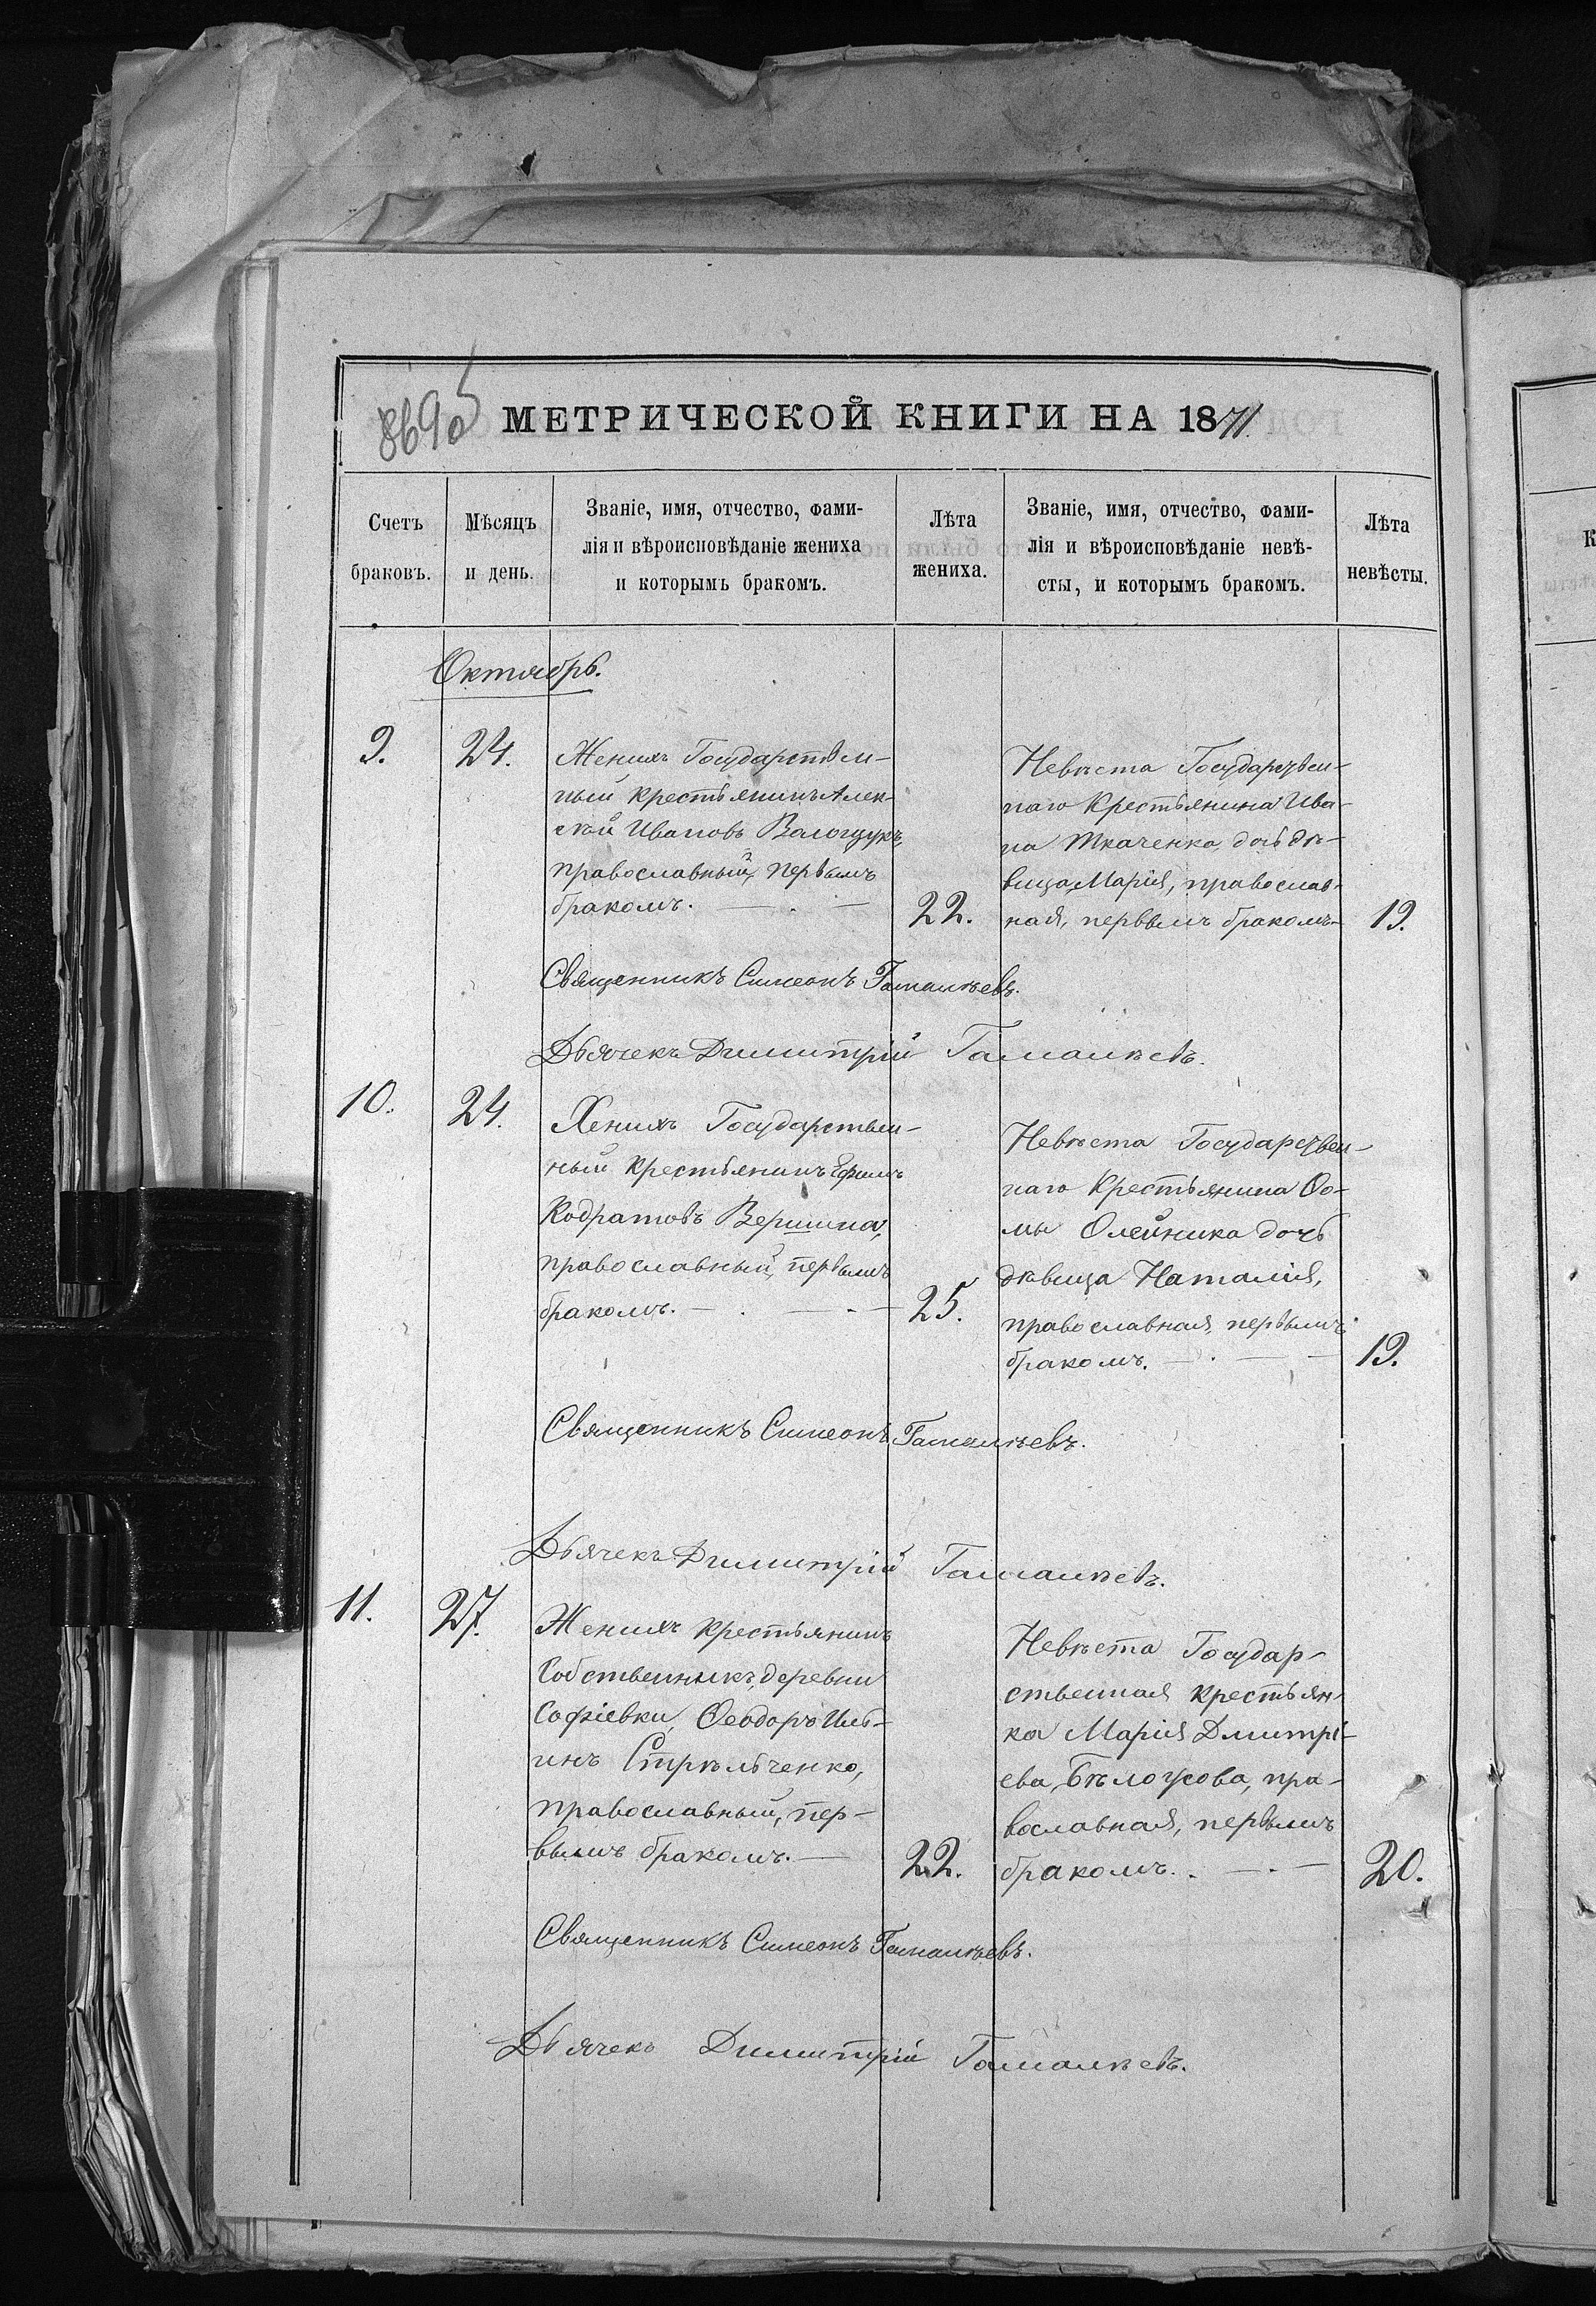 МЕТРИЧЕСКОЙ КНИГИ НА 1871.
Счетъ браковъ.
Мѣсяцъ и день.
Званіе, имя, отчество, фами-
лія и вѣроисповѣданіе жениха
и которымъ бракомъ.
Лѣта жениха.
Званіе, имя, отчество, фами-
лія и вѣроисповѣданіе невѣ-
сты, и которымъ бракомъ.
Лѣта невѣсты.
Октябрь.
9.
24.
Женихъ Государствен-
ный крестьянинъ Алек-
сѣй Ивановъ Волощукъ,
православный, первымъ
бракомъ.
22.
Невѣста Государствен-
наго Крестьянина Ива-
на Ткаченка, дочь дѣ-
вица Марія, православ-
ная, первымъ бракомъ
19.
Священникъ Симеонъ Гамалѣевъ.
Дьячекъ Димитрій Гамалѣевъ.
10.
24.
Женихъ Государствен-
ный Крестьянинъ Ефимъ
Кодратовъ Вершина,
православный, первымъ
бракомъ.
25.
Невѣста Государствен-
наго Крестьянина Ѳо-
мы Олейника дочь
дѣвица Наталія,
православная, первымъ
бракомъ.
19.
Священникъ Симеонъ Гамалѣевъ.
Дьячекъ Димитрій Гамалѣевъ.
11.
27.
Женихъ крестьянинъ
Собственникъ, деревни
Софіевки, Ѳеодоръ Иль-
инъ Стрѣльченко,
православный, пер-
вымъ бракомъ.
22.
Невѣста Государ-
ственная крестьян-
ка Марія Дмитрі-
ева, Бѣлоусова, пра-
вославная, первымъ
бракомъ.
20.
Священникъ Симеонъ Гамалѣевъ.
Дьячекъ Димитрій Гамалѣевъ.